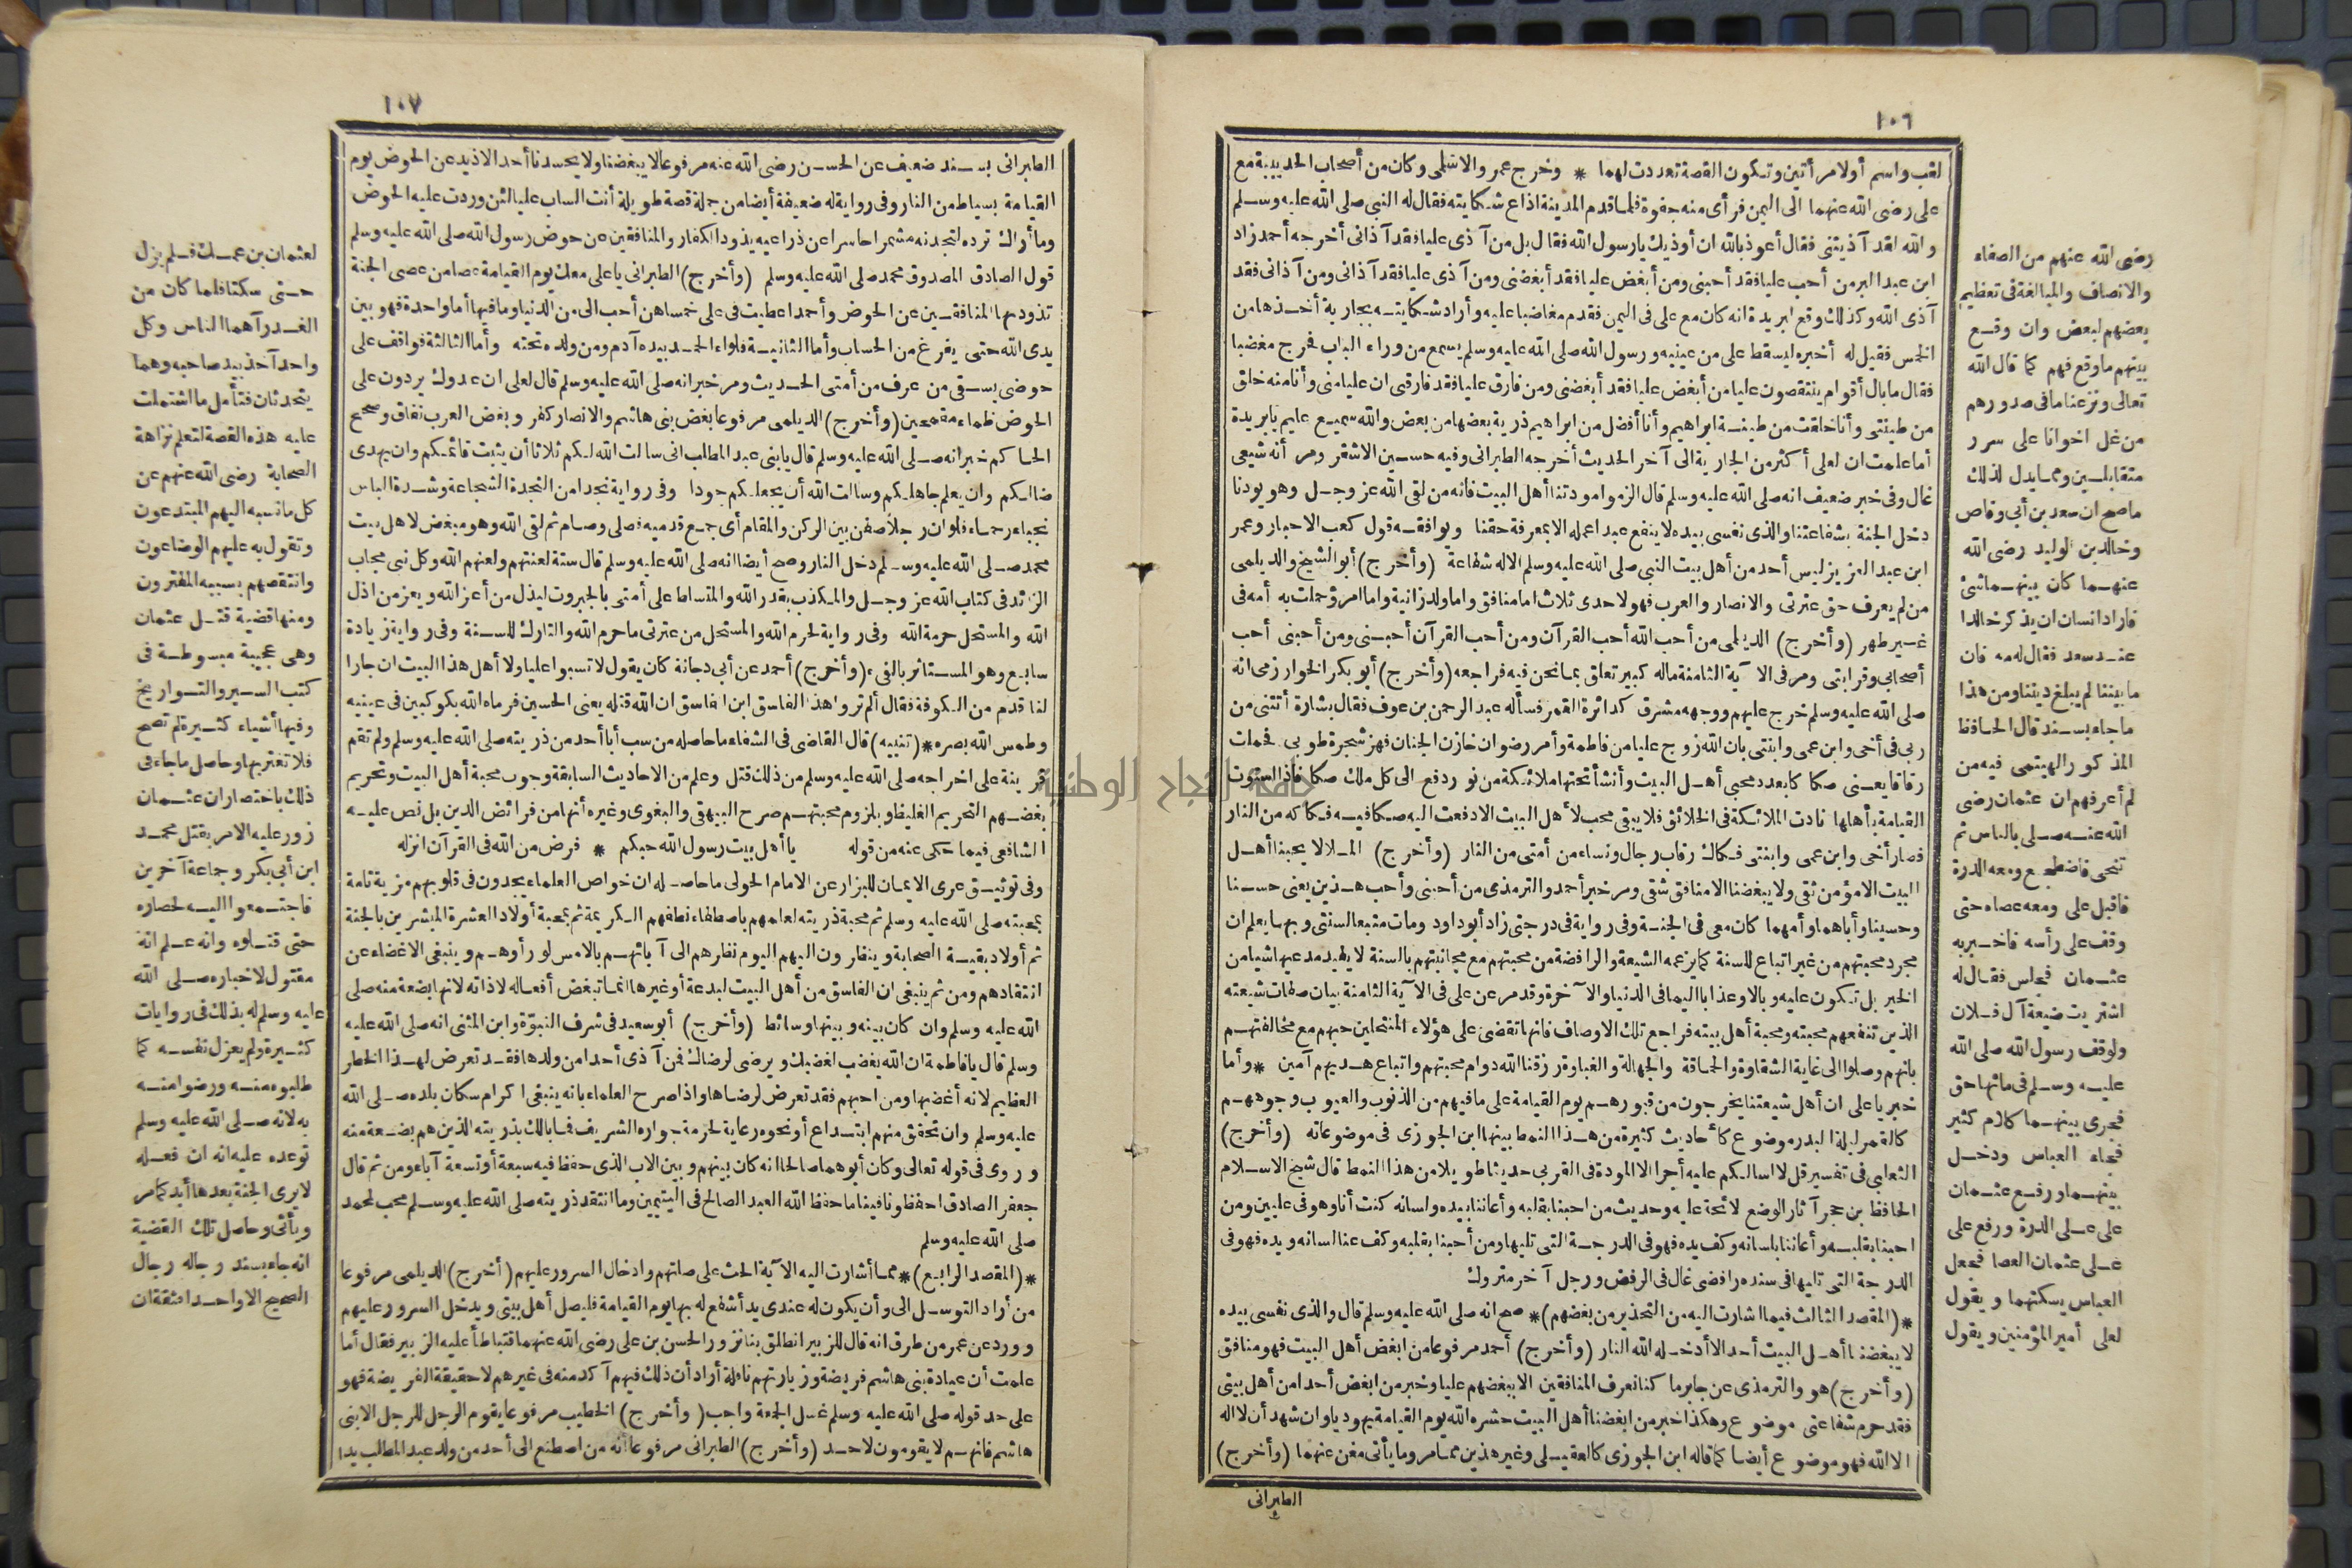 ١٠٦
لقب واسم أولا مرأتين وتكون القصة تعددت لهما * وخرج عمرو الاسلمى وكان من أصحاب الحديبية مع
على رضى الله عنهما الى اليمن فرأى منه جفوة فلما قدم المدينة اذاع شكايته فقال له النبى صلى الله عليه وسلم
والله لقد آذيتنى فقال أعوذ بالله ان أوذيك يا رسول الله فقال بل من آذى عليا فقد آذانى أخرجه أحمد زاد
ابن عبد البر من أحب عليا فقد أحبنى ومن أبغض عليا فقد أبغضنى ومن آذى عليا فقد آذانى ومن آذانى فقد
آذى الله وكذلك وقع لبريدة انه كان مع على فى اليمن فقدم مغاضبا عليه وأراد شكايته بجارية أخذها من
الخمس فقيل له أخبره ليسقط على من عينيه ورسول الله صلى الله عليه وسلم يسمع من وراء الباب فخرج مغضبا
فقال ما بال أقوام ينتقصون عليا من أبغض عليا فقد أبغضنى ومن فارق عليا فقد فارقنى ان عليا منى وأنا منه خلق
من طينتى وأنا خلقت من طينة ابراهيم وأنا أفضل من ابراهيم ذرية بعضها من بعض والله سميع عليم يا بريدة
أما علمت ان لعلى أكثر من الجارية الى آخر الحديث أخرجه الطبرانى وفيه حسين الاشقر ومر أنه شيعى
غال وفى خبر ضعيف انه صلى الله عليه وسلم قال الزموا مودتنا أهل البيت فانه من لقى الله عز وجل وهو يودنا
دخل الجنة بشفاعتنا والذى نفسى بيده لا ينفع عبدا عمله الا بمعرفة حقنا ويوافقه قول كعب الاحبار وعمر
ابن عبد العزيز ليس أحد من أهل بيت النبى صلى الله عليه وسلم الا له شفاعة (وأخرج) أبو الشيخ والديلمى
من لم يعرف حق عترتى والانصار والعرب فهو لاحدى ثلاث اما منافق واما ولد زانية واما امرؤ حملت به أمه فى
غير طهر (وأخرج) الديلمى من أحب الله أحب القرآن ومن أحب القرآن أحبنى ومن أحبنى أحب
أصحابى وقرابتى ومر فى الآية الثامنة ماله كبير تعلق بما نحن فيه فراجعه (وأخرج) أبو بكر الخوارزمى انه
صلى الله عليه وسلم خرج عليهم ووجهه مشرق كدائرة القمر فسأله عبد الرحمن بن عوف فقال بشارة أتتنى من
ربى فى أخى وابن عمى وابنتى بان الله زوج عليا من فاطمة وأمر رضوان خازن الجنان فهز شجرة طوبى فحملت
رقاقا يعنى صكاكا بعدد محبى أهل البيت وأنشأ تحتها ملائكة من نور دفع الى كل ملك صكا فاذا استوت
القيامة بأهلها نادت الملائكة فى الخلائق فلا يبقى محب لأهل البيت الا دفعت اليه صكا فيه فكاكه من النار
فصار أخى وابن عمى وابنتى فكاك رقاب رجال ونساء من أمتى من النار (وأخرج) الملا لا يحبنا أهل
البيت الا مؤمن تقى ولا يبغضنا الا منافق شقى ومر خبر أحمد والترمذى من أحبنى وأحب هذين يعنى حسنا
وحسينا وأباهما وأمهما كان معى فى الجنة وفى رواية فى درجتى زاد أبو داود ومات متبعا لسنتى وبها يعلم ان
مجرد محبتهم من غير اتباع للسنة كما يزعمه الشيعة والرافضة من محبتهم مع مجانبتهم بالسنة لا يفيد مدعيها شيا من
الخير بل تكون عليه وبالا وعذابا اليما فى الدنيا والآخرة وقد مر عن على فى الآية الثامنة بيان صفات شيعته
الذين تنفعهم محبته ومحبة أهل بيته فراجع تلك الاوصاف فانها تقضى على هؤلاء المنتحلين حبهم مع مخالفتهم
بانهم وصلوا الى غاية الشقاوة والحماقة والجهالة والغباوة رزقنا الله دوام محبتهم واتباع هديهم آمين * وأما
خبر يا على ان أهل شيعتنا يخرجون من قبورهم يوم القيامة على ما فيهم من الذنوب والعيوب وجوههم
كالقمر ليلة البدر موضوع كأحاديث كثيرة من هذا النمط بينها ابن الجوزى فى موضوعاته (وأخرج)
الثعلبى فى تفسير قل لا أسألكم عليه أجرا الا المودة فى القربى حديثا طويلا من هذا النمط قال شيخ الاسلام
الحافظ بن حجر آثار الوضع لائحة عليه وحديث من احبنا بقلبه وأعاننا بيده ولسانه كنت أنا وهو فى عليين ومن
احبنا بقلبه وأعاننا بلسانه وكف يده فهو فى الدرجة التى تليها ومن أحبنا بقلبه وكف عنا لسانه ويده فهو فى
الدرجة التى تليها فى سنده رافضى غال فى الرفض ورجل آخر متروك
*(المقصد الثالث فيما اشارت اليه من التحذير من بغضهم)* صح انه صلى الله عليه وسلم قال والذى نفسى بيده
لا يبغضنا أهل البيت أحد الا أدخله الله النار (وأخرج) أحمد مرفوعا من ابغض أهل البيت فهو منافق
(وأخرج) هو والترمذى عن جابر ما كنا نعرف المنافقين الا ببغضهم عليا وخبر من ابغض أحدا من أهل بيتى
فقد حرم شفاعتى موضوع وهكذا خبر من ابغضنا أهل البيت حشره الله يوم القيامة يهوديا وان شهد أن لا اله
الا الله فهو موضوع أيضا كما قاله ابن الجوزى كالعقيلى وغير هذين مما مر وما يأتى مغن عنهما (وأخرج)
الطبرانى
رضى الله عنهم من الصفاء
والانصاف والمبالغة فى تعظيم
بعضهم لبعض وان وقع
بينهم ما وقع فهم كما قال الله
تعالى ونزعنا ما فى صدورهم
من غل اخوانا على سرر
متقابلين ومما يدل لذلك
ما صح ان سعد بن أبى وقاص
وخالد بن الوليد رضى الله
عنهما كان بينهما شئ
فاراد انسان ان يذكر خالدا
عند سعد فقال له مه فان
ما بيننا لم يبلغ ديننا ومن هذا
ما جاء بسند قال الحافظ
المذكور الهيتمى فيه من
لم أعرفهم ان عثمان رضى
الله عنه صلى بالناس ثم
تنحى فاضطجع ومعه الدرة
فاقبل على ومعه عصاه حتى
وقف على رأسه فاخبر به
عثمان فجلس فقال له
اشتريت ضيعة آل فلان
ولوقف رسول الله صلى الله
عليه وسلم فى مائها حق
فجرى بينهما كلام كثير
فجاء العباس ودخل
بينهما ورفع عثمان
على على الدرة ورفع على
على عثمان العصا فجعل
العباس يسكتهما ويقول
لعلى أمير المؤمنين ويقول
١٠٧
الطبرانى بسند ضعيف عن الحسن رضى الله عنه مرفوعا لا يبغضنا ولا يحسدنا أحد الا ذيد عن الحوض يوم
القيامة بسياط من النار وفى رواية له ضعيفة أيضا من جملة قصة طويلة أنت الساب عليا لئن وردت عليه الحوض
وما أراك ترده لتجدنه مشمرا حاسرا عن ذراعيه يذود الكفار والمنافقين عن حوض رسول الله صلى الله عليه وسلم
قول الصادق المصدوق محمد صلى الله عليه وسلم (وأخرج) الطبرانى يا على معك يوم القيامة عصا من عصى الجنة
تذود بها المنافقين عن الحوض وأحمد اعطيت فى على خمسا هن أحب الى من الدنيا وما فيها أما واحدة فهو بين
يدى الله حتى يفرغ من الحساب وأما الثانية فلواء الحمد بيده آدم ومن ولده تحته وأما الثالثة فواقف على
حوضى يسقى من عرف من أمتى الحديث ومر خبر انه صلى الله عليه وسلم قال لعلى ان عدوك يردون على
الحوض ظماء مقمحين (وأخرج) الديلمى مرفوعا بغض بنى هاشم والانصار كفر وبغض العرب نفاق وصحح
الحاكم خبر انه صلى الله عليه وسلم قال يا بنى عبد المطلب انى سالت الله لكم ثلاثا أن يثبت قائمكم وان يهدى
ضالكم وان يعلم جاهلكم وسالت الله أن يجعلكم جودا وفى رواية نجدا من النجدة الشجاعة وشدة الباس
نجباء رحماء فلو ان رجلا صفن بين الركن والمقام أى جمع قدميه فصلى وصام ثم لقى الله وهو مبغض لاهل بيت
محمد صلى الله عليه وسلم دخل النار وصح أيضا انه صلى الله عليه وسلم قال ستة لعنتهم ولعنهم الله وكل نبى مجاب
الزائد فى كتاب الله عز وجل والمكذب بقدر الله والمتسلط على أمتى بالجبروت ليذل من أعز الله ويعز من اذل
الله والمستحل حرمة الله وفى رواية لحرم الله والمستحل من عترتى ما حرم الله والتارك للسنة وفى رواية زيادة
سابع وهو المستاثر بالفىء (وأخرج) أحمد عن أبى دجانة كان يقول لا تسبوا عليا ولا أهل هذا البيت ان جارا
لنا قدم من الكوفة فقال ألم تروا هذا الفاسق ابن الفاسق ان الله قتله يعنى الحسين فرماه الله بكوكبين فى عينيه
وطمس الله بصره *(تنبيه) قال القاضى فى الشفاء ما حاصله من سب أبا أحد من ذريته صلى الله عليه وسلم ولم تقم
قرينة على اخراجه صلى الله عليه وسلم من ذلك قتل وعلم من الاحاديث السابقة وجوب محبة أهل البيت وتحريم
بغضهم التحريم الغليظ وبلزوم محبتهم صرح البيهقى والبغوى وغيره أنها من فرائض الدين بل نص عليه
الشافعى فيما حكى عنه من قوله يا أهل بيت رسول الله حبكم * فرض من الله فى القرآن انزله
وفى توثيق عرى الايمان للبزار عن الامام الحولى ما حاصله ان خواص العلماء يجدون فى قلوبهم مزية تامة
بمحبته صلى الله عليه وسلم ثم محبة ذريته لعلمهم باصطفاء نطفهم الكريمة ثم بمحبة أولاد العشرة المبشرين بالجنة
ثم أولاد بقية الصحابة وينظرون اليهم اليوم نظرهم الى آبائهم بالامس لو رأوهم وينبغى الاغضاء عن
انتقادهم ومن ثم ينبغى ان الفاسق من أهل البيت لبدعة أو غيرها انما تبغض أفعاله لا ذاته لانها بضعة منه صلى
الله عليه وسلم وان كان بينه وبينها وسائط (وأخرج) أبو سعيد فى شرف النبوّة وابن المثنى انه صلى الله عليه
وسلم قال يا فاطمة ان الله يغضب لغضبك ويرضى لرضاك فمن آذى أحدا من ولدها فقد تعرض لهذا الخطر
العظيم لانه أغضبها ومن احبهم فقد تعرض لرضاها ولذا صرح العلماء بانه ينبغى اكرام سكان بلده صلى الله
عليه وسلم وان تحقق منهم ابتداع أو نحوه رعاية لحرمة جواره الشريف فما بالك بذريته الذين هم بضعة منه
وروى فى قوله تعالى وكان أبوهما صالحا انه كان بينهم وبين الاب الذى حفظ فيه سبعة أو تسعة آباء ومن ثم قال
جعفر الصادق احفظونا فينا ما حفظ الله العبد الصالح فى اليتيمين وما انتقد ذريته صلى الله عليه وسلم محب لمحمد
صلى الله عليه وسلم
*(المقصد الرابع)* مما أشارت اليه الآية الحث على صلتهم وادخال السرور عليهم (أخرج) الديلمى مرفوعا
من أراد التوسل الى وأن يكون له عندى يد أشفع له بها يوم القيامة فليصل أهل بيتى ويدخل السرور عليهم
وورد عن عمر من طرق انه قال للزبير انطلق بنا نزور الحسن بن على رضى الله عنهما فتباطأ عليه الزبير فقال أما
علمت أن عيادة بنى هاشم فريضة وزيارتهم نافلة أراد أن ذلك فيهم آكد منه فى غيرهم لا حقيقة الفريضة فهو
على حد قوله صلى الله عليه وسلم غسل الجمعة واجب (وأخرج) الخطيب مرفوعا يقوم الرجل للرجل الا بنى
هاشم فانهم لا يقومون لاحد (وأخرج) الطبرانى مرفوعا أنه من اصطنع الى أحد من ولد عبد المطلب يدا
لعثمان بن عمك فلم يزل
حتى سكتا فلما كان من
الغد رآهما الناس وكل
واحد آخذ بيد صاحبه وهما
يتحدثان فتأمل ما اشتملت
عليه هذه القصة لتعلم نزاهة
الصحابة رضى الله عنهم عن
كل ما نسبه اليهم المبتدعون
وتقول به عليهم الوضاعون
وانتقصهم بسببه المفترون
ومنها قضية قتل عثمان
وهى عجيبة مبسوطة فى
كتب السير والتواريخ
وفيها أشياء كثيرة لم تصح
فلا تغتر بها وحاصل ما جاء فى
ذلك باختصار ان عثمان
زور عليه الامر بقتل محمد
ابن أبى بكر وجماعة آخرين
فاجتمعوا اليه لحصاره
حتى قتلوه وانه علم انه
مقتول لاخباره صلى الله
عليه وسلم له بذلك فى روايات
كثيرة ولم يعزل نفسه كما
طلبوه منه ورضوا منه
به لانه صلى الله عليه وسلم
توعده عليه انه ان فعله
لا يرى الجنة بعدها أبدا كما مر
ويأتى وحاصل تلك القضية
انه جاء بسند رجاله رجال
الصحيح الا واحدا فثقة ان
جامعة النجاح الوطنية